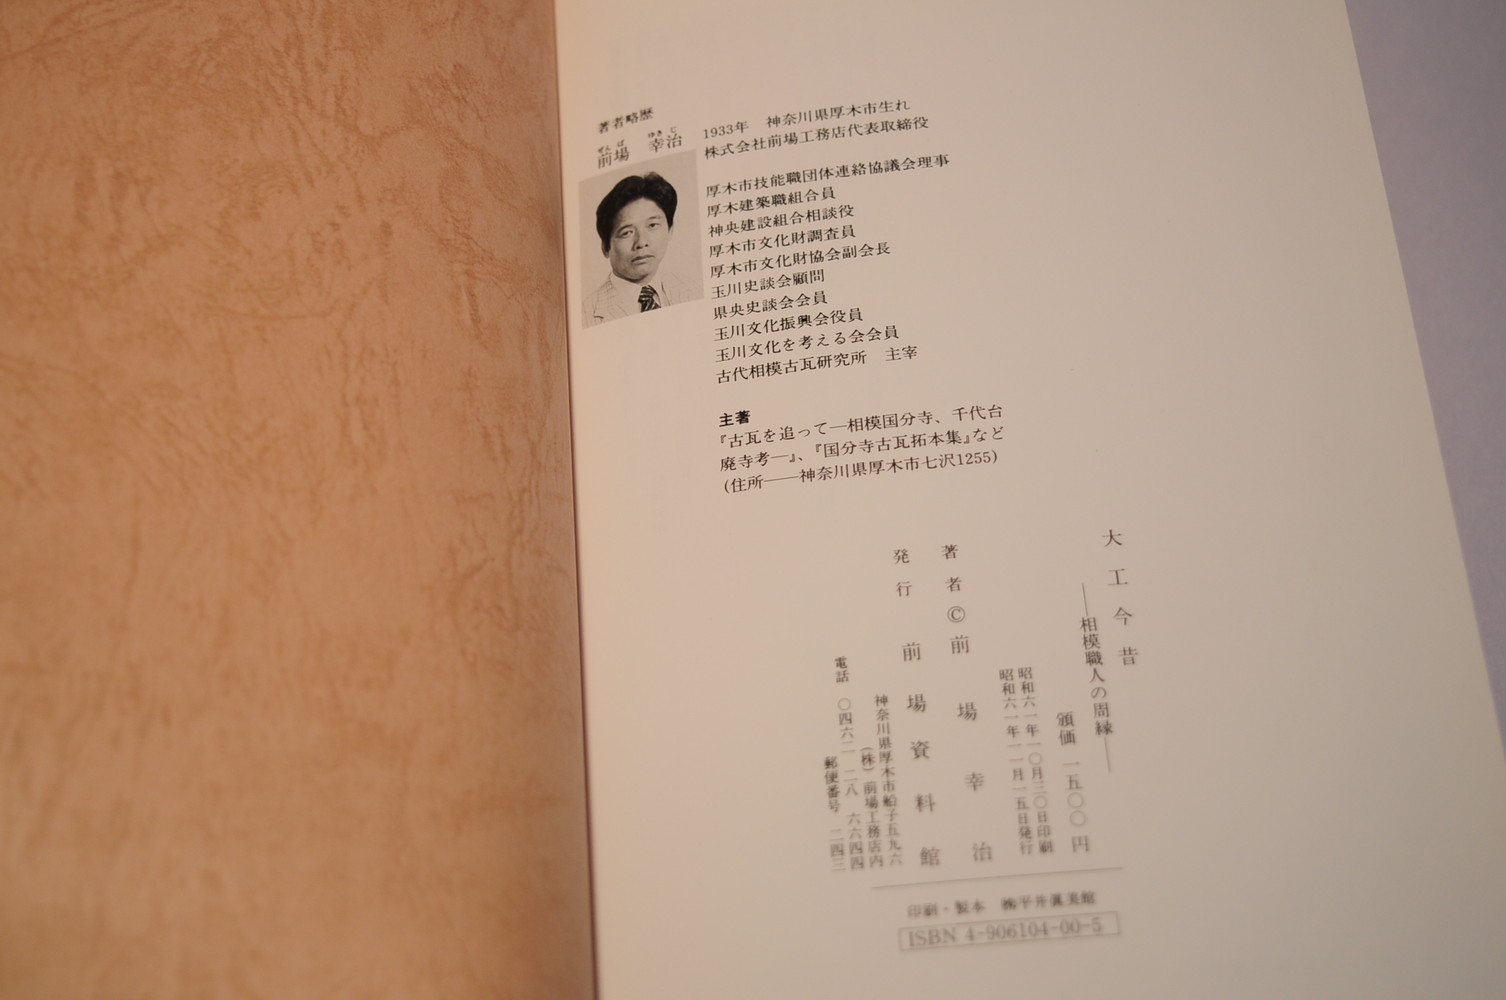 著者略歴
ぜんば ゆきじ
前場 幸治
1933年 神奈川県厚木市生れ
株式会社前場工務店代表取締役
厚木市技能職団体連絡協議会理事
厚木建築職組合員
神央建設組合相談役
厚木市文化財調査員
厚木市文化財協会副会長
玉川史談会顧問
県央史談会会員
玉川文化振興会役員
玉川文化を考える会会員
古代相模古瓦研究所 主宰
主著
『古瓦を追って―相模国分寺、千代台
廃寺考―』、『国分寺古瓦拓本集』など
(住所――神奈川県厚木市七沢1255)
大工今昔
――相模職人の周縁――
頒価 一五〇〇円
昭和六一年一〇月三〇日印刷
昭和六一年一一月一五日発行
著者 © 前場幸治
発行 前場資料館
神奈川県厚木市船子五九六
(株)前場工務店内
電話 〇四六二 二八 六六四四
郵便番号 二四三
印刷・製本 ㈱平井眞美館
ISBN 4-906104-00-5